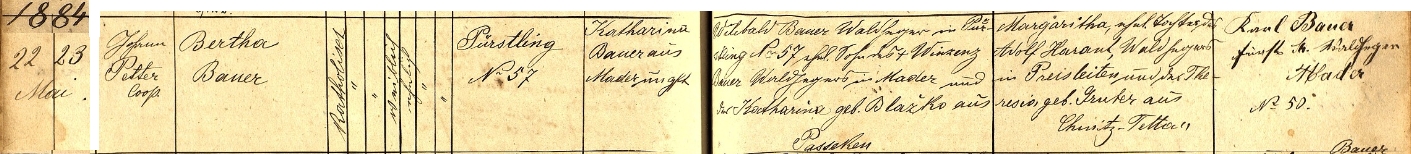 1884
22 23
Mai
Johann
Petter
Coop.
Bertha
Bauer
Katholisch
"
weiblich
"
ehelich
"
Pürstling
No 57
Katharina
Bauer aus
Mader ungpt
Wilibald Bauer Waldheger in Pür-
stling No 57 ehel. Sohn des Winzenz
Bauer Waldhegers in Mader und
der Katharina geb. Blažko aus
Passeken
Margaritha, ehel. Tochter des
Adolf Harant Waldhegers
in Preisleiten und der The-
resia, geb. Gruber aus
Chinitz-Tettau
Karl Bauer
fürstl. Waldheger
Mader
No 50.
Bauer